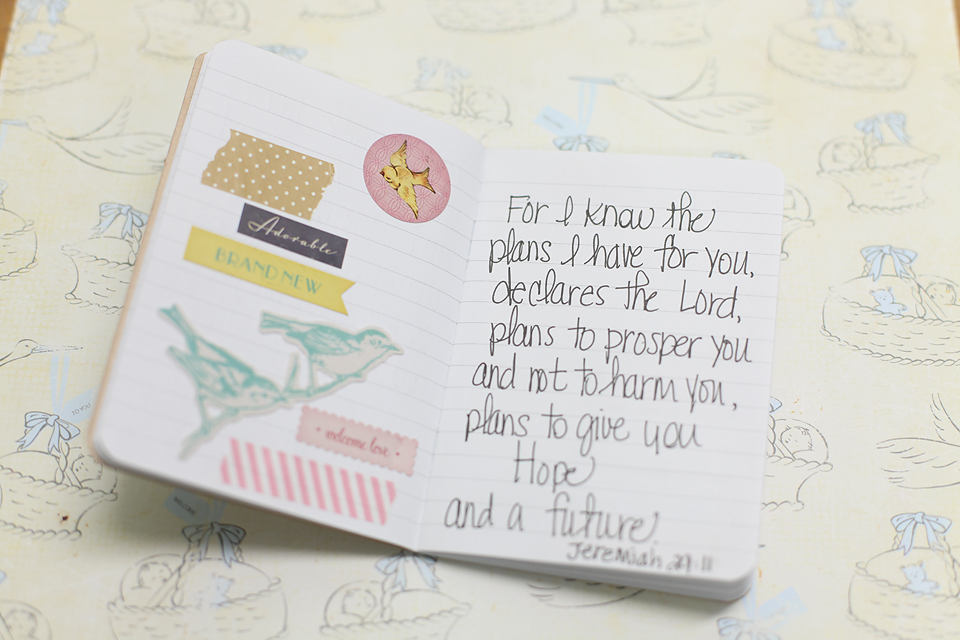 Adorable
BRAND NEW
• welcome love •
For I know the
plans I have for you,
declares the Lord,
plans to prosper you
and not to harm you,
plans to give you
Hope
and a future.
Jeremiah 29:11
TO YOU
WELCOME